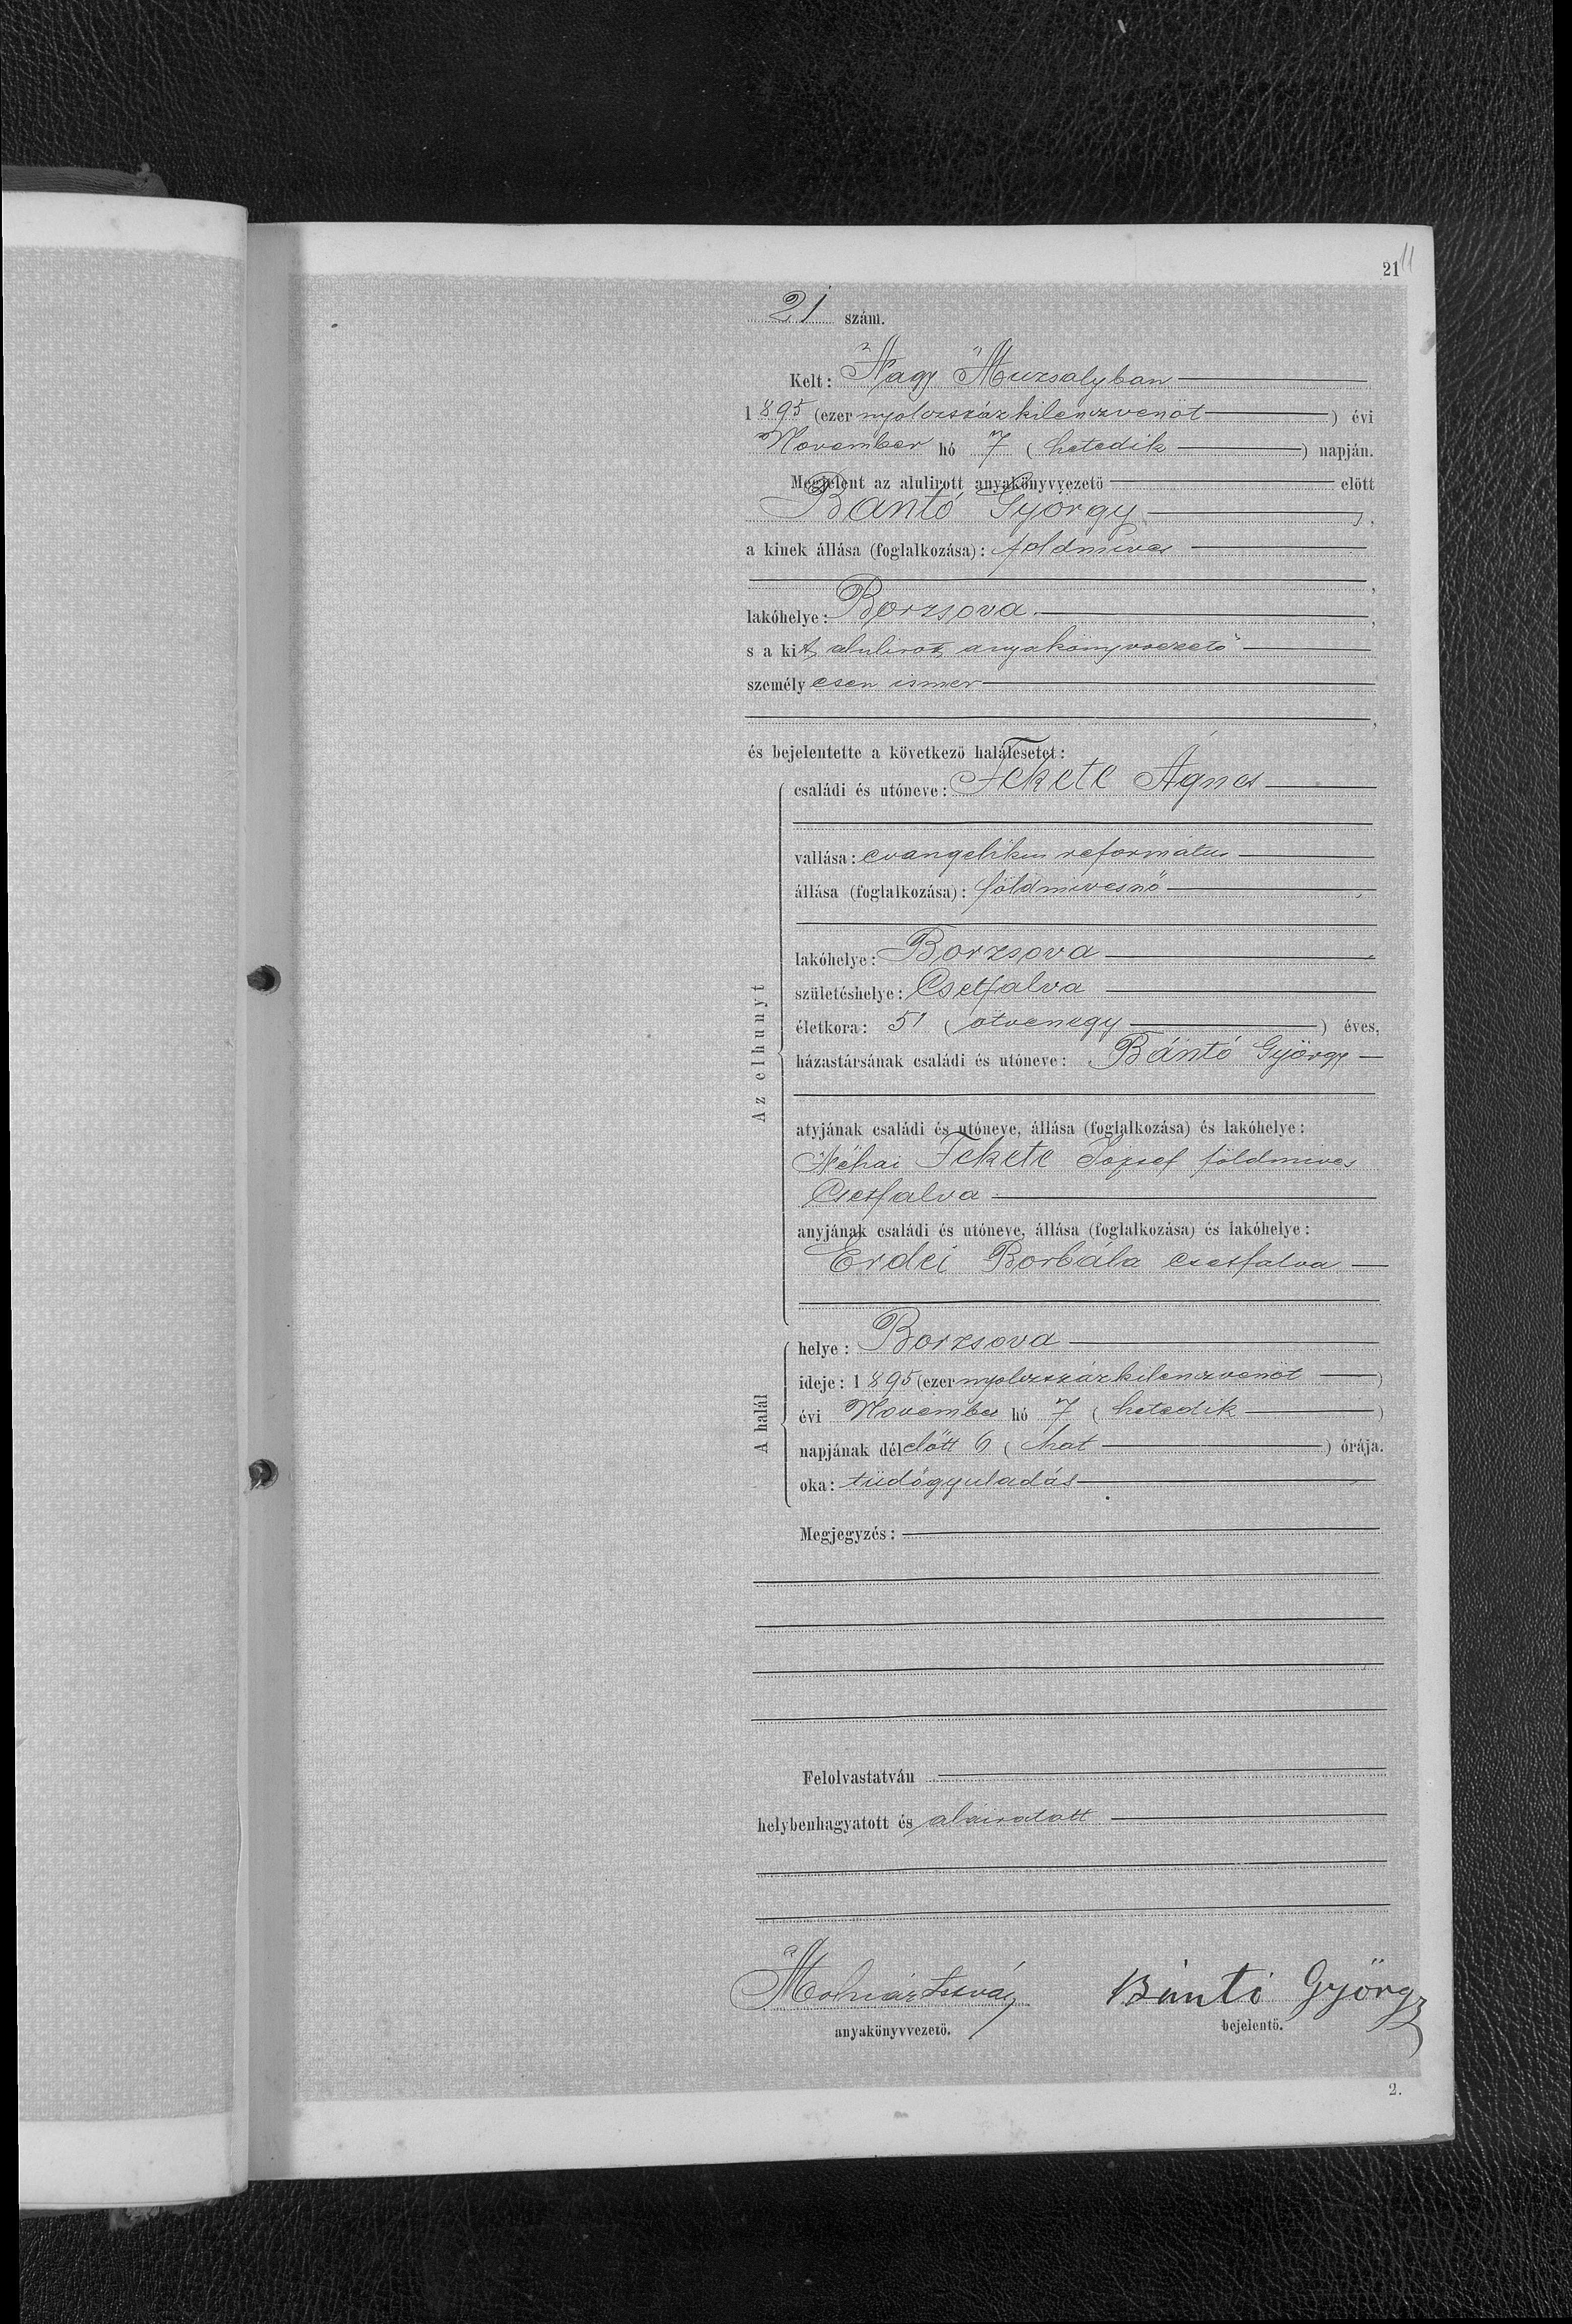 21 11
21 szám.
Kelt: Nagy Muzsalyban
1895 (ezer nyolczszázkilenczvenöt) évi
November hó 7 (hetedik) napján.
Megjelent az alulirott anyakönyvvezető előtt
Bántó György,
a kinek állása (foglalkozása): földmives
,
lakóhelye: Borzsova,
s a kit alulirott anyakönyvvezető
személyesen ismer
,
és bejelentette a következő halálesetet:
Az elhunyt
családi és utóneve: Fekete Ágnes
vallása: evangelikus református
állása (foglalkozása): földmivesnő
lakóhelye: Borzsova
születéshelye: Csetfalva
életkora: 51 (ötvenegy) éves,
házastársának családi és utóneve: Bántó György
atyjának családi és utóneve, állása (foglalkozása) és lakóhelye:
Néhai Fekete József földmives
Csetfalva
anyjának családi és utóneve, állása (foglalkozása) és lakóhelye:
Erdei Borbála Csetfalva
A halál
helye: Borzsova
ideje: 1895 (ezer nyolczszázkilenczvenöt)
évi November hó 7 (hetedik)
napjának délelőtt 6 (hat) órája.
oka: tüdőgyuladás
Megjegyzés:
Felolvastatván
helybenhagyatott és aláiratott
Molnár István Bántó György
anyakönyvvezető. bejelentő.
2.